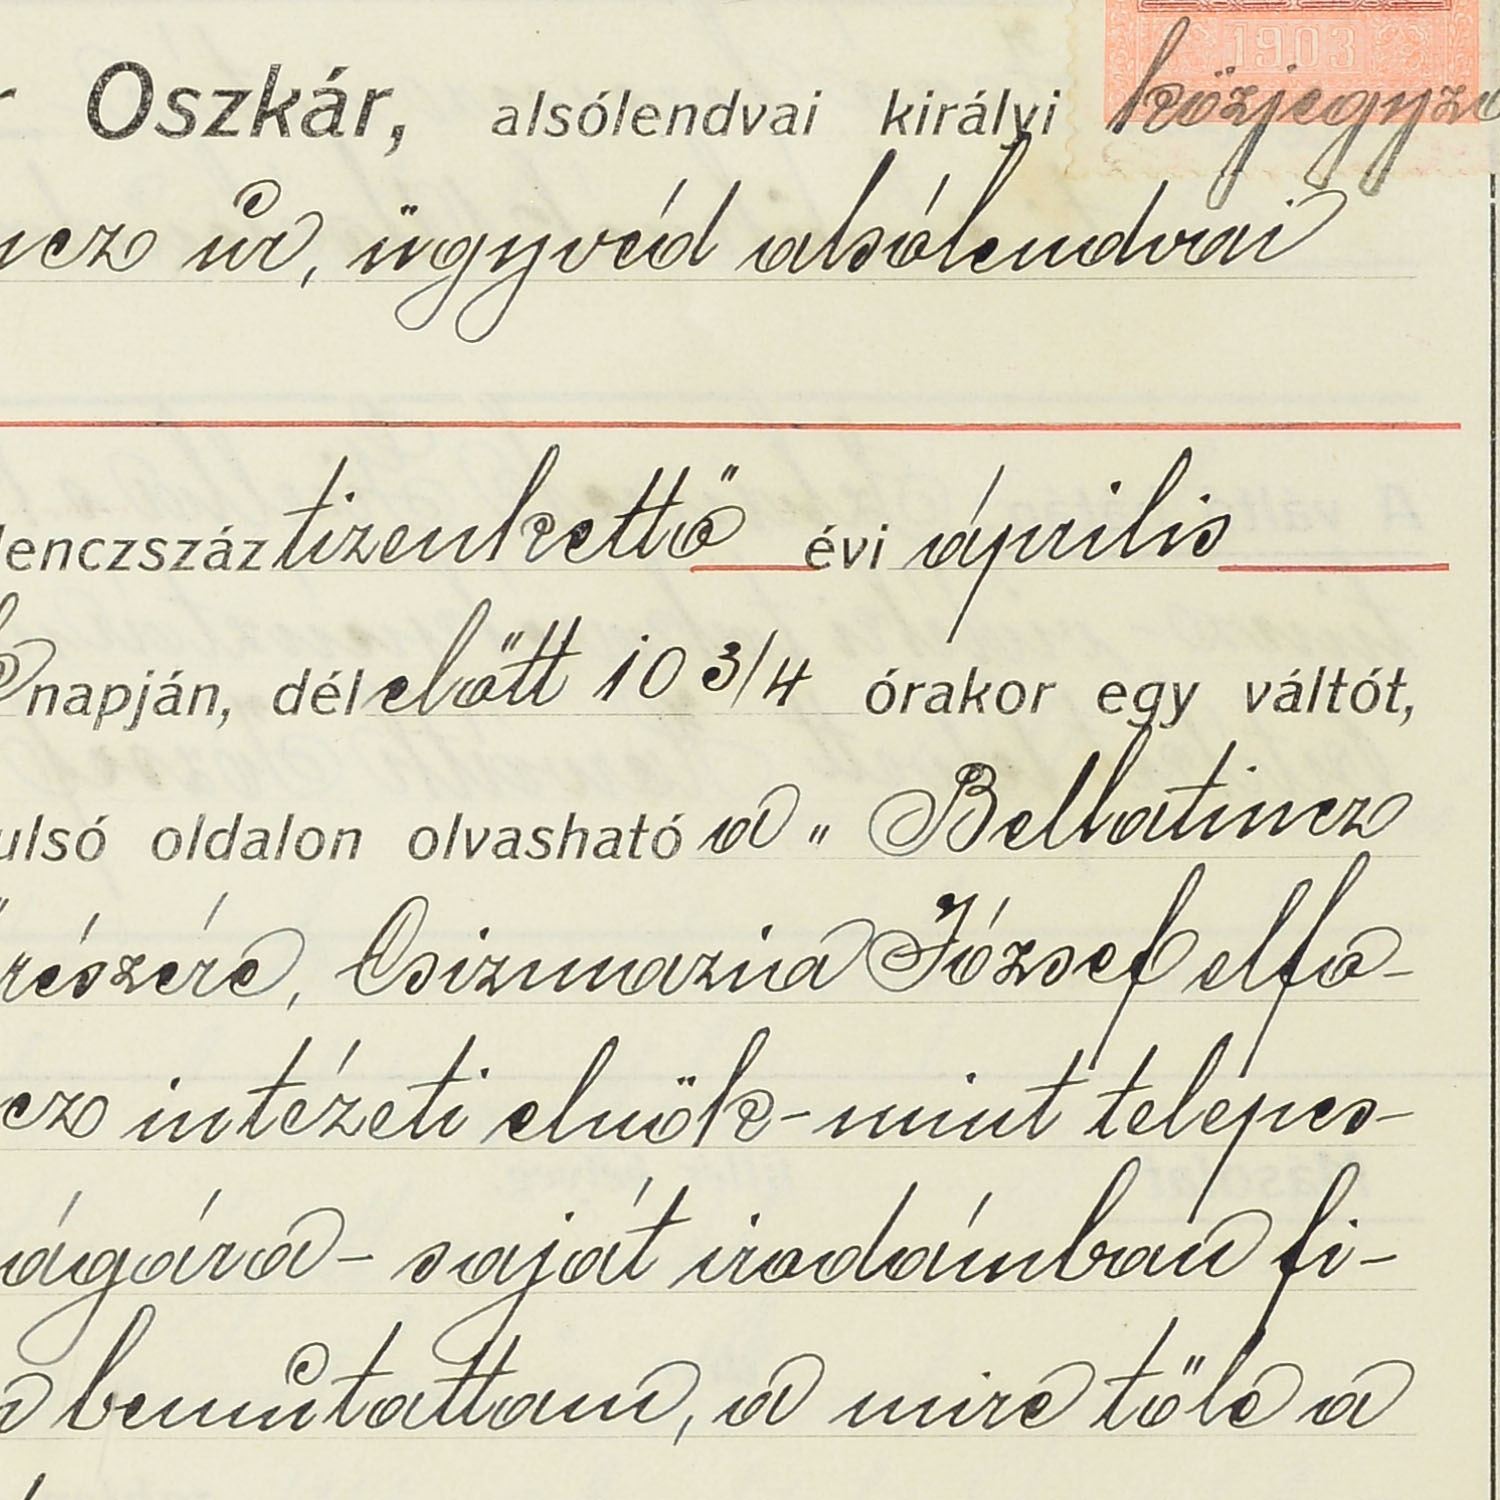 1903
r Oszkár, alsólendvai királyi közjegyző
ncz úr, ügyvéd alsólendvai
lenczszáz tizenkettő évi április
napján, délelőtt 10 3/4 órakor egy váltót,
ulsó oldalon olvasható a „ Bellatincz
részére, Csizmazia József elfo-
cz intézeti elnök-mint telepes-
ágára - saját irodámban fi-
bemutattam, a mire tőle a